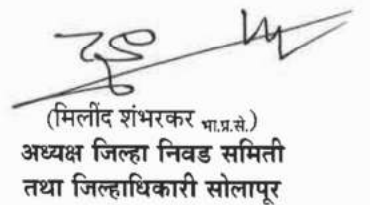 (मिलींद शंभरकर भा.प्र.से.)
अध्यक्ष जिल्हा निवड समिती
तथा जिल्हाधिकारी सोलापूर